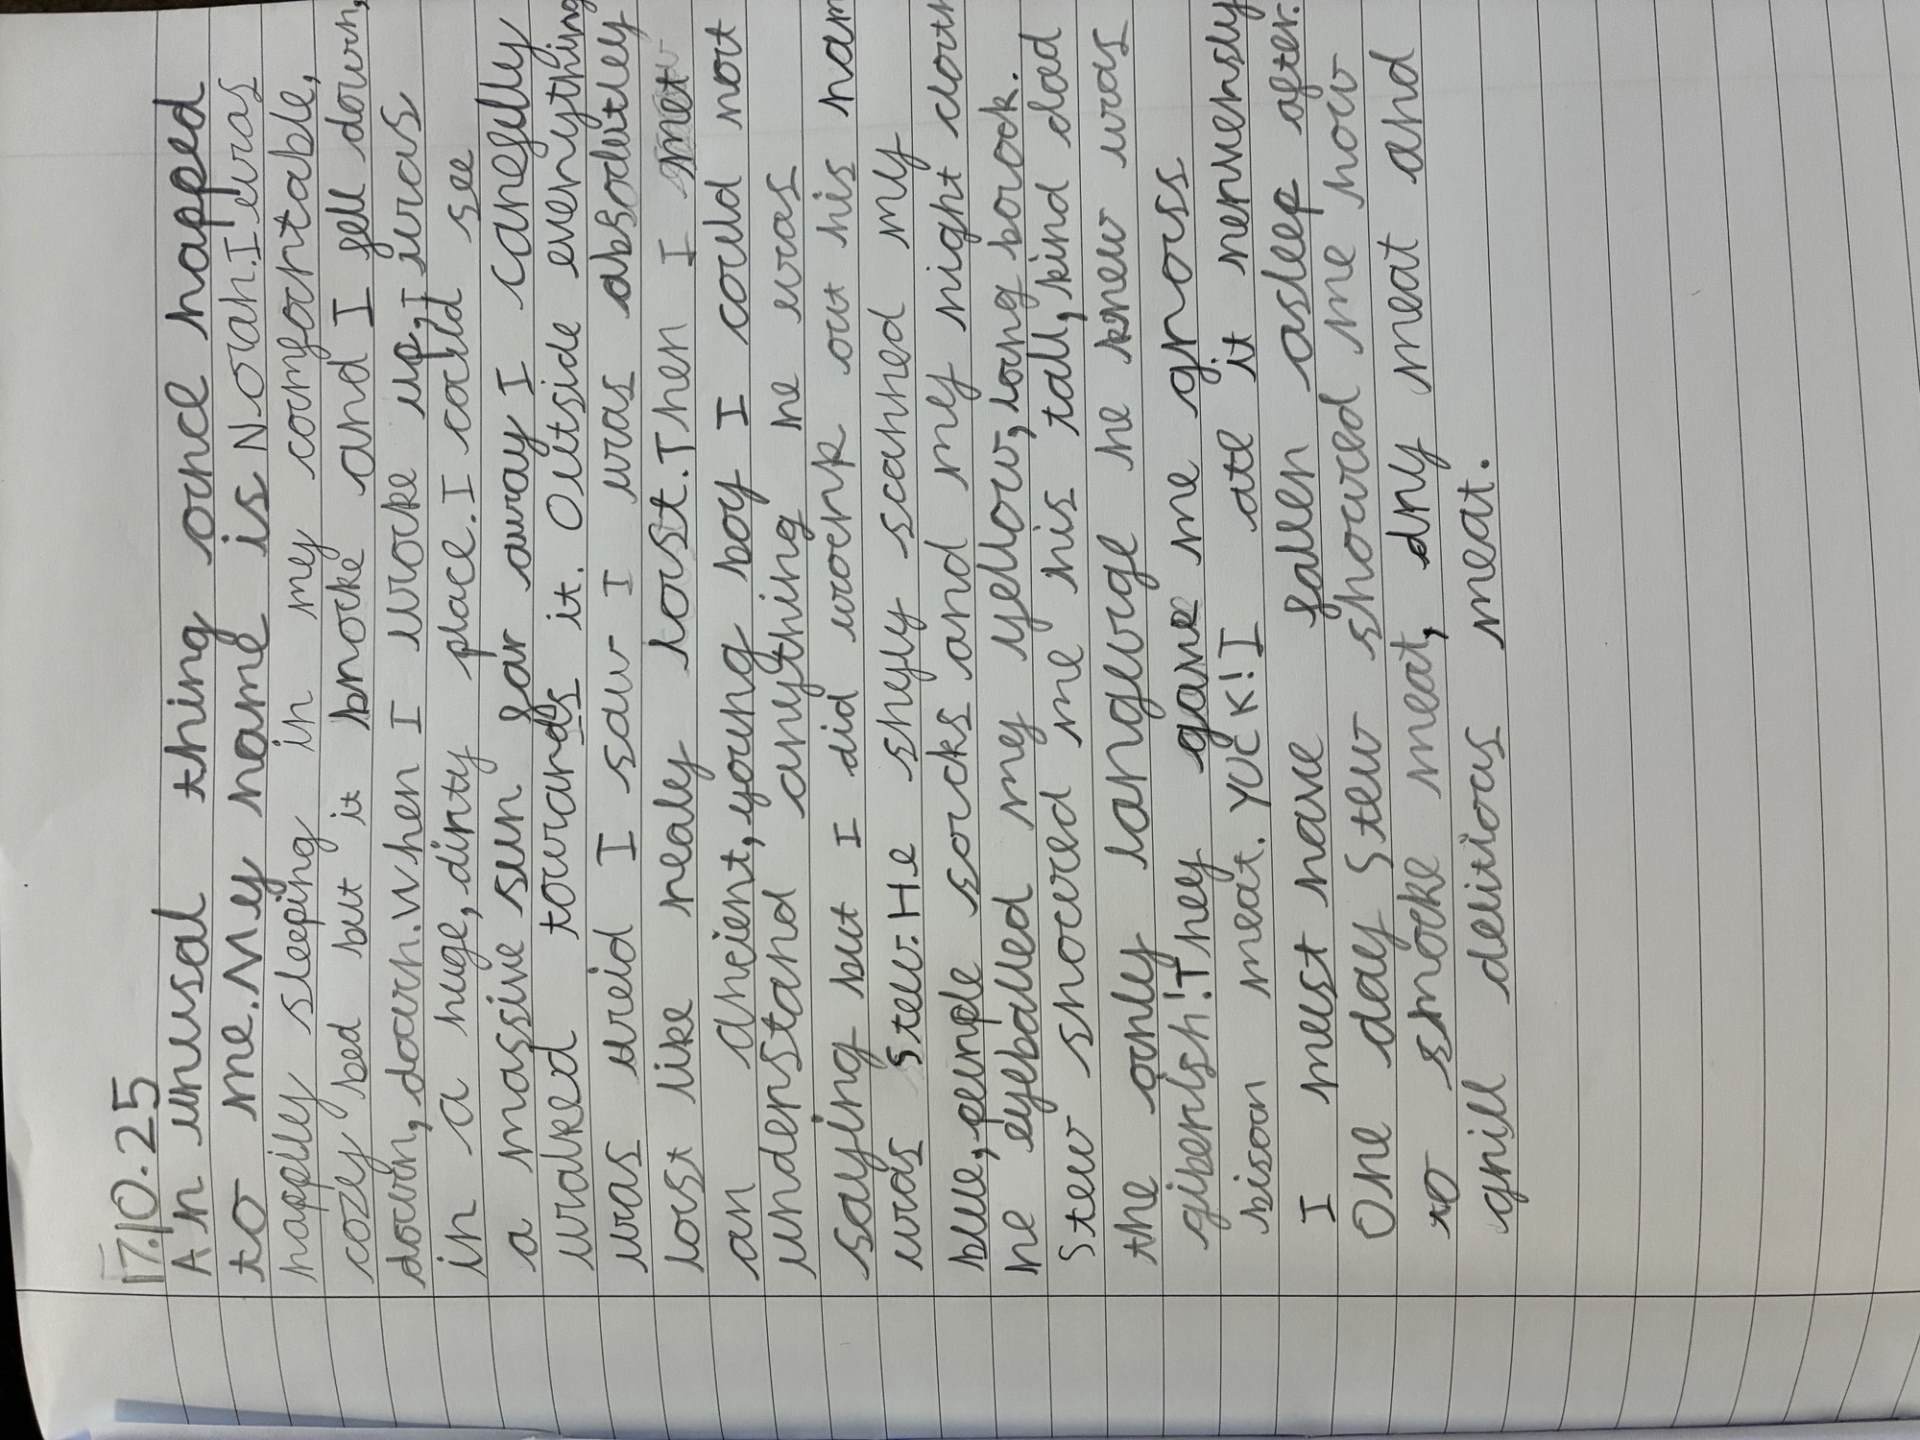 17.10.25
An unusal thing once happed
to me. My name is Noah. I was
happily sleeping in my comfortable,
cozy bed but it broke and I fell down,
down, down. When I woke up, I was
in a huge, dirty place. I could see
a massive sun far away I carefully
walked towards it. Outside everything
was wreid I saw I was absolutley
lost like realy lost. Then I met
an ancient, young boy I could not
understand anything he was
saying but I did work out his nam
was Stew. He shyly scanned my
blue, purple socks and my night cloth
he eyeballed my yellow, long book.
Stew showed me his tall, kind dad
the only languge he knew was
giberish! They gave me gross
bison meat. YUCK! I ate it nervensly
I must have fallen asleep after.
One day Stew showed me how
to smoke meat, dry meat and
grill delitios meat.